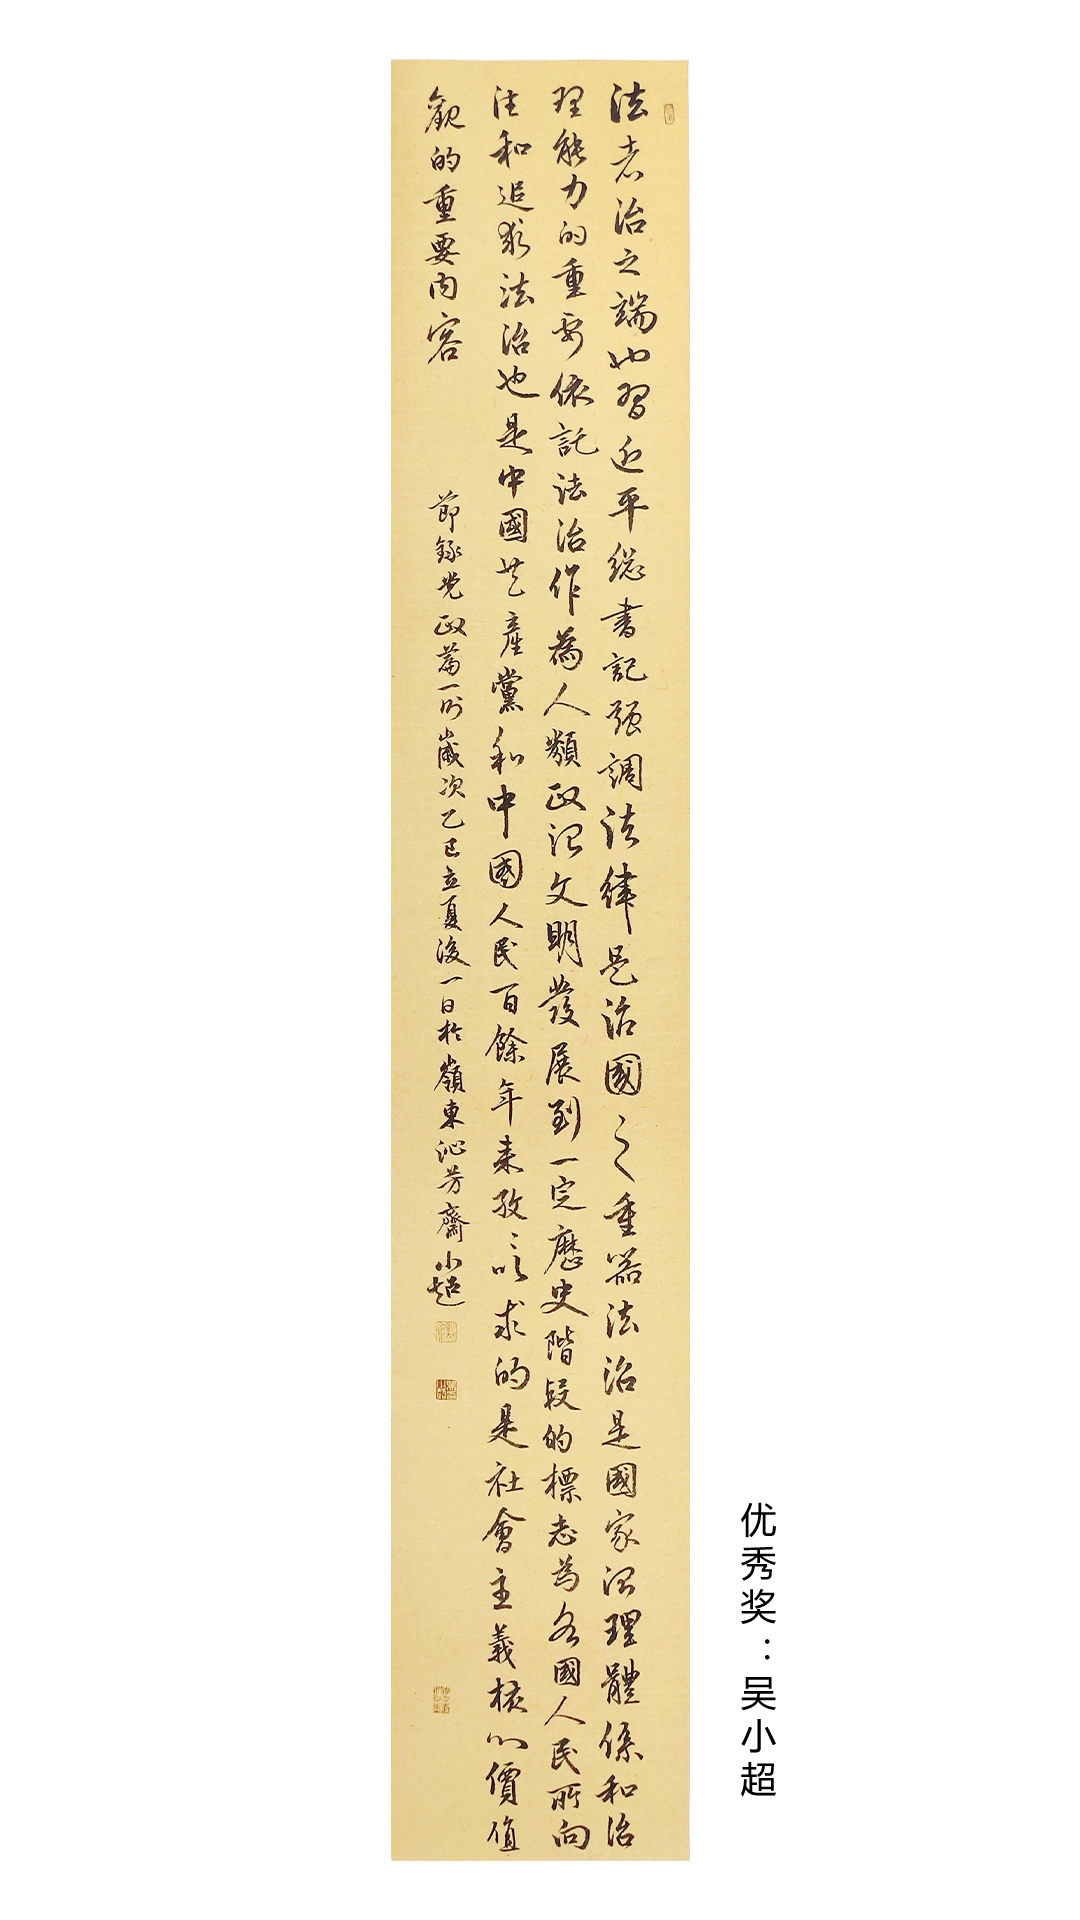 法者治之端也習近平總書記强調法律是治國之重器法治是國家治理體係和治
理能力的重要依託法治作為人類政治文明發展到一定歷史階段的標志為各國人民所向
往和追求法治也是中國共產黨和中國人民百餘年来孜〻以求的是社會主義核心價值
觀的重要内容
節錄党政篇一則歲次乙巳立夏後一日於嶺東沁芳齋小超
优秀奖：吴小超